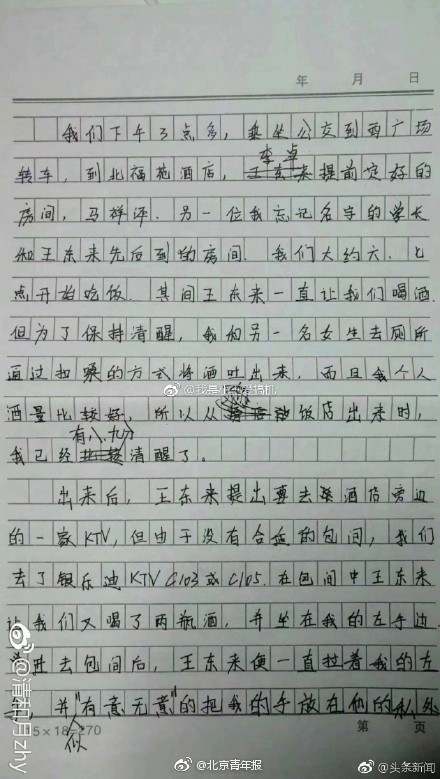 年 月 日
我们下午3点多，乘坐公交到西广场
李卓
转车，到北福苑酒店，王东来提前定好的
房间，马祥评、另一位我忘记名字的学长
和王东来先后到的房间．我们大约六、七
点开始吃饭．其间王东来一直让我们喝酒
但为了保持清醒，我和另一名女生去厕所
通过扣嗓的方式将酒吐出来，而且我个人
酒量比较好，所以从饭店出来时，
有八、九分
我已经比较清醒了。
出来后，王东来提出要去酒店旁边
的一家KTV，但由于没有合适的包间，我们
去了银乐迪KTV C103或C105．在包间中王东来
让我们又喝了两瓶酒，并坐在我的左手边
去包间后，王东来便一直拉着我的左
并"有意无意"的把我的手放在他的私处
似
15×18=270
第 页
@清和月zhy
@北京青年报
@头条新闻